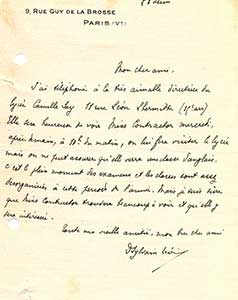 9, RUE GUY DE LA BROSSE
PARIS (Vᵉ)
juin
Mon cher ami,
J'ai téléphoné à la très aimable directrice du
lycée Camille Sée 11 rue Léon Lhermitte (15ᵉ arr)
Elle sera heureuse de voir Miss Contractor mercredi
après demain, à 10ʰ du matin, on lui fera visiter le lycée
mais on ne peut assurer qu'elle verra une classe d'anglais.
c'est le plus mauvais moment des examens et les classes sont assez
désorganisées à cette période de l'année. Mais je suis sûre
que Miss Contractor trouvera beaucoup à voir et qu'elle y
sera intéressée.
Toute ma vieille amitié, mon cher ami